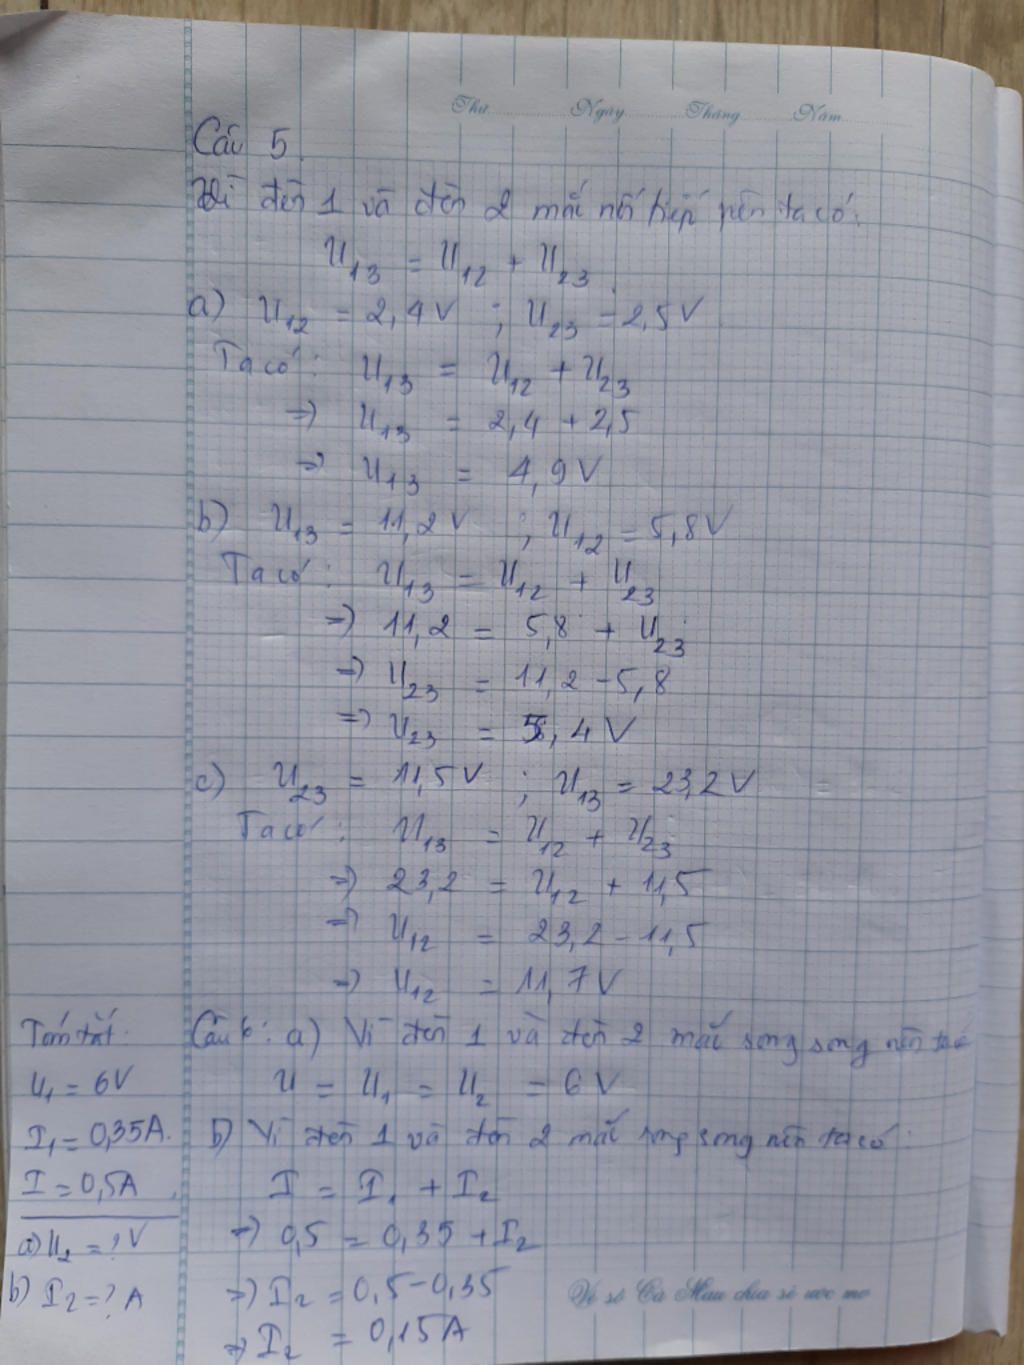 Thứ Ngày Tháng Năm
Câu 5
Vì đèn 1 và đèn 2 mắc nối tiếp nên ta có:
U13 = U12 + U23
a) U12 = 2,4V ; U23 = 2,5V
Ta có: U13 = U12 + U23
=> U13 = 2,4 + 2,5
=> U13 = 4,9V
b) U13 = 11,2V ; U12 = 5,8V
Ta có: U13 = U12 + U23
=> 11,2 = 5,8 + U23
=> U23 = 11,2 - 5,8
=> U23 = 5,4V
c) U23 = 11,5V ; U13 = 23,2V =
Ta có: U13 = U12 + U23
=> 23,2 = U12 + 11,5
=> U12 = 23,2 - 11,5
=> U12 = 11,7V
Tóm tắt:
U1 = 6V
I1 = 0,35A.
I = 0,5A
a) U2 = ? V
b) I2 = ? A
Câu 6: a) Vì đèn 1 và đèn 2 mắc song song nên ta có
U = U1 = U2 = 6V
b) Vì đèn 1 và đèn 2 mắc song song nên ta có:
I = I1 + I2
=> 0,5 = 0,35 + I2
=> I2 = 0,5 - 0,35
=> I2 = 0,15A
Vé số Cà Mau chia sẻ ước mơ